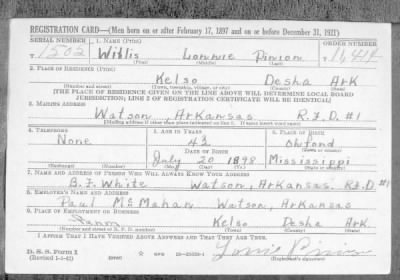 REGISTRATION CARD—(Men born on or after February 17, 1897 and on or before December 31, 1921)
SERIAL NUMBER 1. NAME (Print) ORDER NUMBER
T. 1502 Willis Lonnie Pinion T. 11,414
(First) (Middle) (Last)
2. PLACE OF RESIDENCE (Print)
Kelso Desha Ark
(Number and street) (Town, township, village, or city) (County) (State)
[THE PLACE OF RESIDENCE GIVEN ON THE LINE ABOVE WILL DETERMINE LOCAL BOARD
JURISDICTION; LINE 2 OF REGISTRATION CERTIFICATE WILL BE IDENTICAL]
3. MAILING ADDRESS
Watson, Arkansas R.F.D. #1
[Mailing address if other than place indicated on line 2. If same insert word same]
4. TELEPHONE 5. AGE IN YEARS 6. PLACE OF BIRTH
None 43 Oxford
DATE OF BIRTH (Town or county)
July 20 1898 Mississippi
(Exchange) (Number) (Mo.) (Day) (Yr.) (State or country)
7. NAME AND ADDRESS OF PERSON WHO WILL ALWAYS KNOW YOUR ADDRESS
B.F. White Watson, Arkansas. R.F.D #1
8. EMPLOYER'S NAME AND ADDRESS
Paul McMahan Watson, Arkansas
9. PLACE OF EMPLOYMENT OR BUSINESS
Farm Kelso Desha Ark.
(Number and street or R. F. D. number) (Town) (County) (State)
I AFFIRM THAT I HAVE VERIFIED ABOVE ANSWERS AND THAT THEY ARE TRUE.
D. S. S. Form 1
(Revised 1-1-42) (over) GPO 16—21630-1
(Registrant's signature)